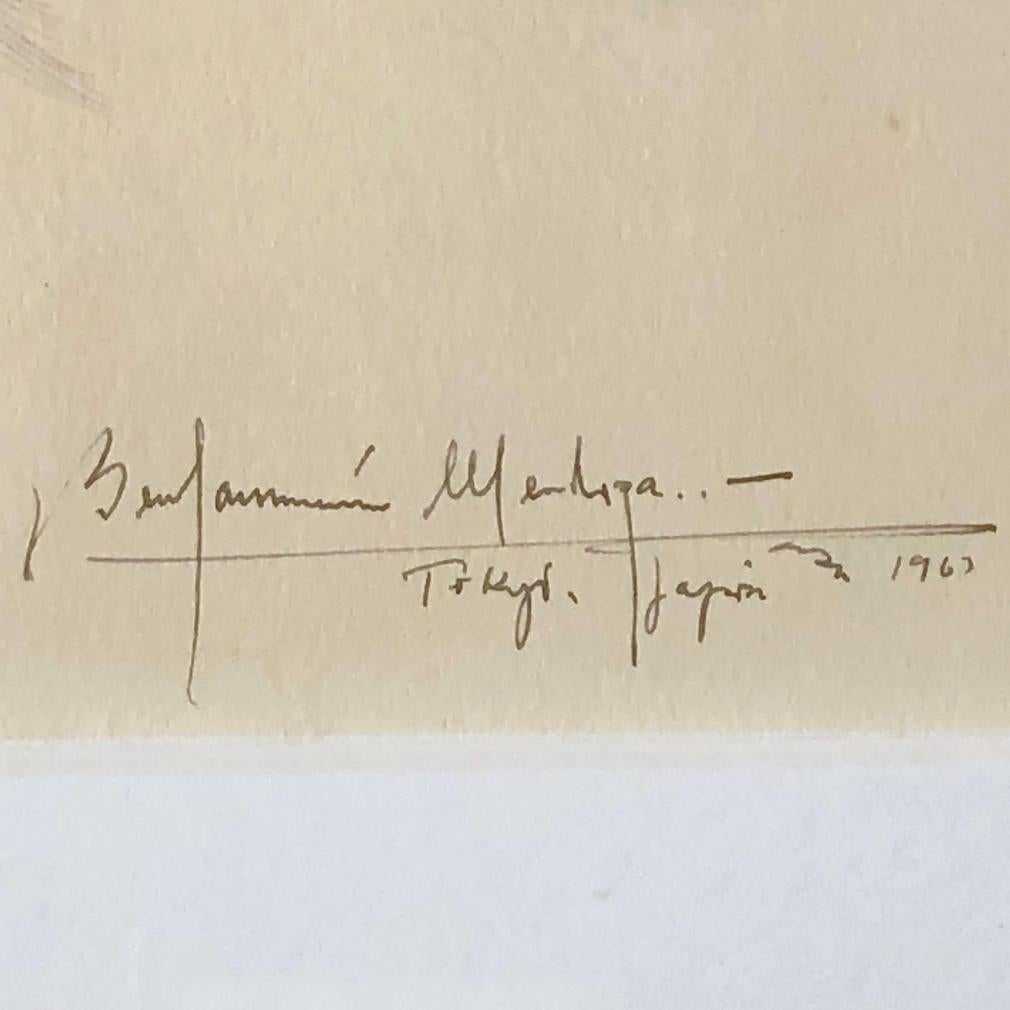 Benjammín Mendoza..—
Tokyo. Japón 1963